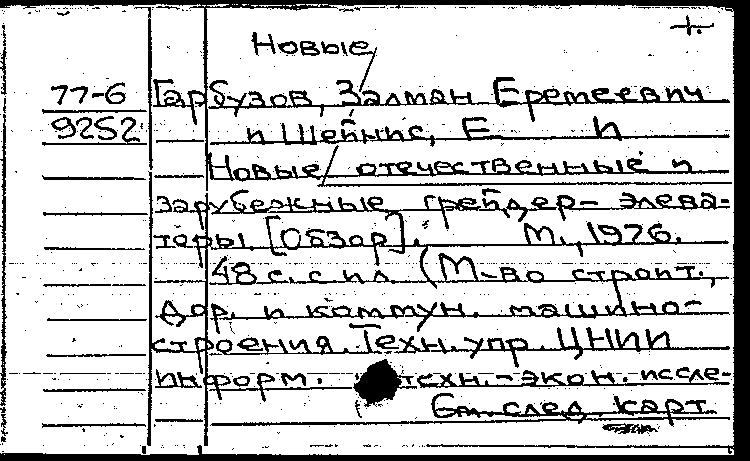 Новые
77-6 Гарбузов, Залман Еремеевич
9252 и Шейнис, Е И
Новые / отечественные и
зарубежные грейдер- элева-
торы. [Обзор]. М., 1976.
48 с. с ил. (М-во строит.,
дор. и коммун. машино-
строения. Техн. упр. ЦНИИ
информ. техн.-экон. иссле-
См. след. карт.